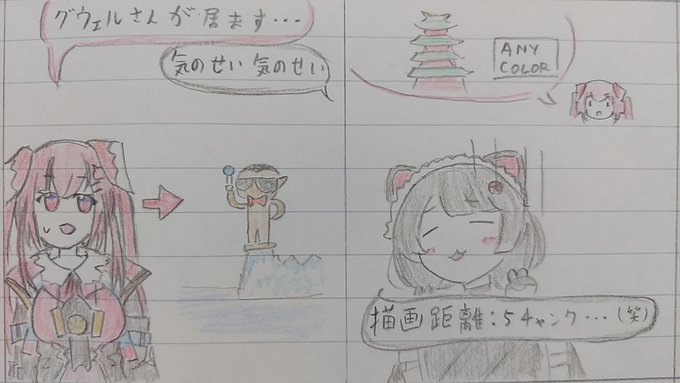 グウェルさんが居ます...
気のせい気のせい
ANY
COLOR
描画距離:5チャンク...(笑)